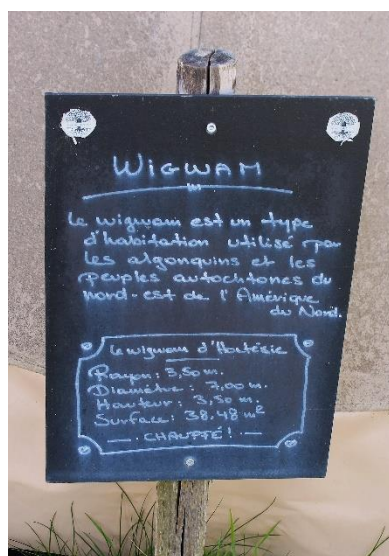 WIGWAM
Le wigwam est un type
d'habitation utilisé par
les algonquins et les
peuples autochtones du
nord-est de l'Amérique
du Nord.
Le wigwam d'Hortésie
Rayon: 3,50 m.
Diamètre: 7,00 m.
Hauteur: 3,50 m.
Surface: 38,48 m²
— CHAUFFÉ! —